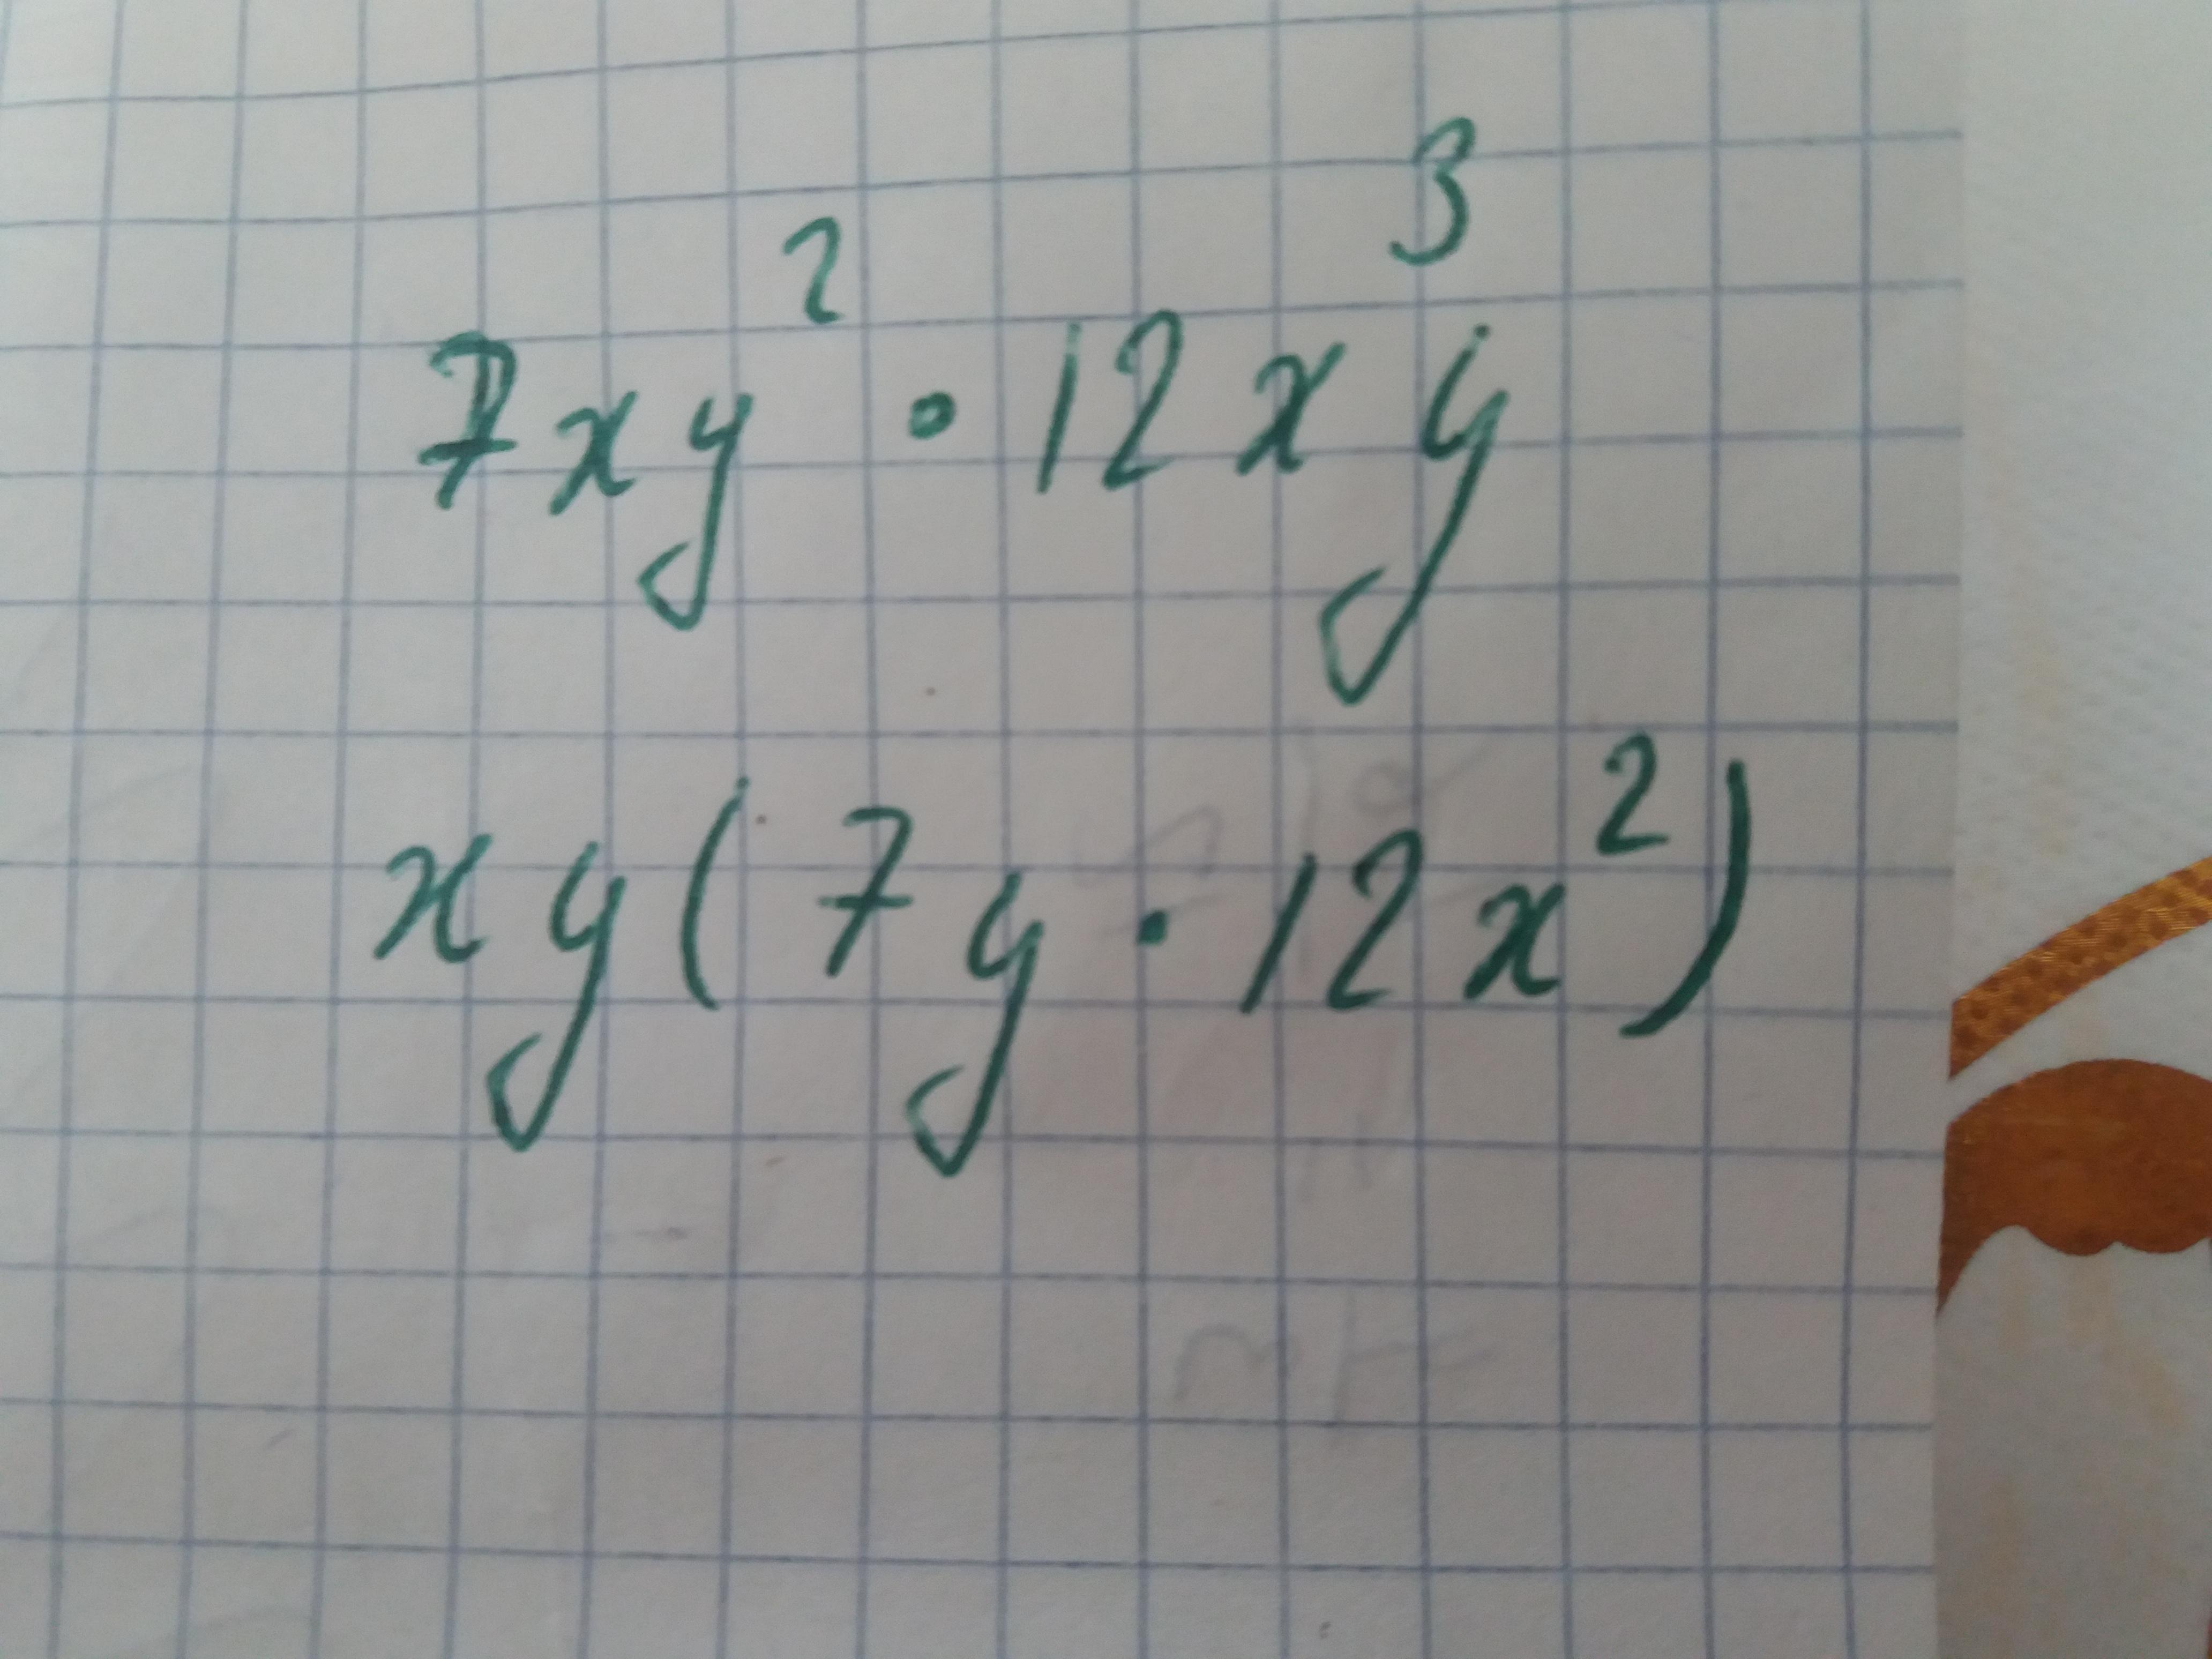 7xy² · 12xy³
xy(7y · 12x²)